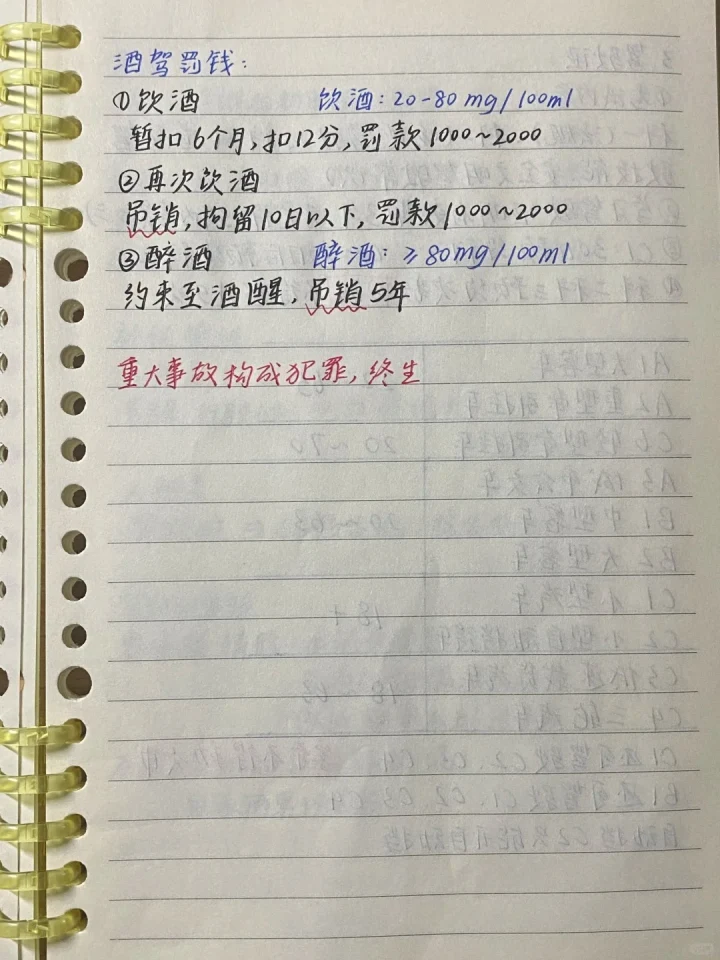 酒驾罚钱:
①饮酒 饮酒:20-80mg/100ml
暂扣6个月,扣12分,罚款1000~2000
②再次饮酒
吊销,拘留10日以下,罚款1000~2000
③醉酒 醉酒:≥80mg/100ml
约束至酒醒,吊销5年
重大事故构成犯罪,终生